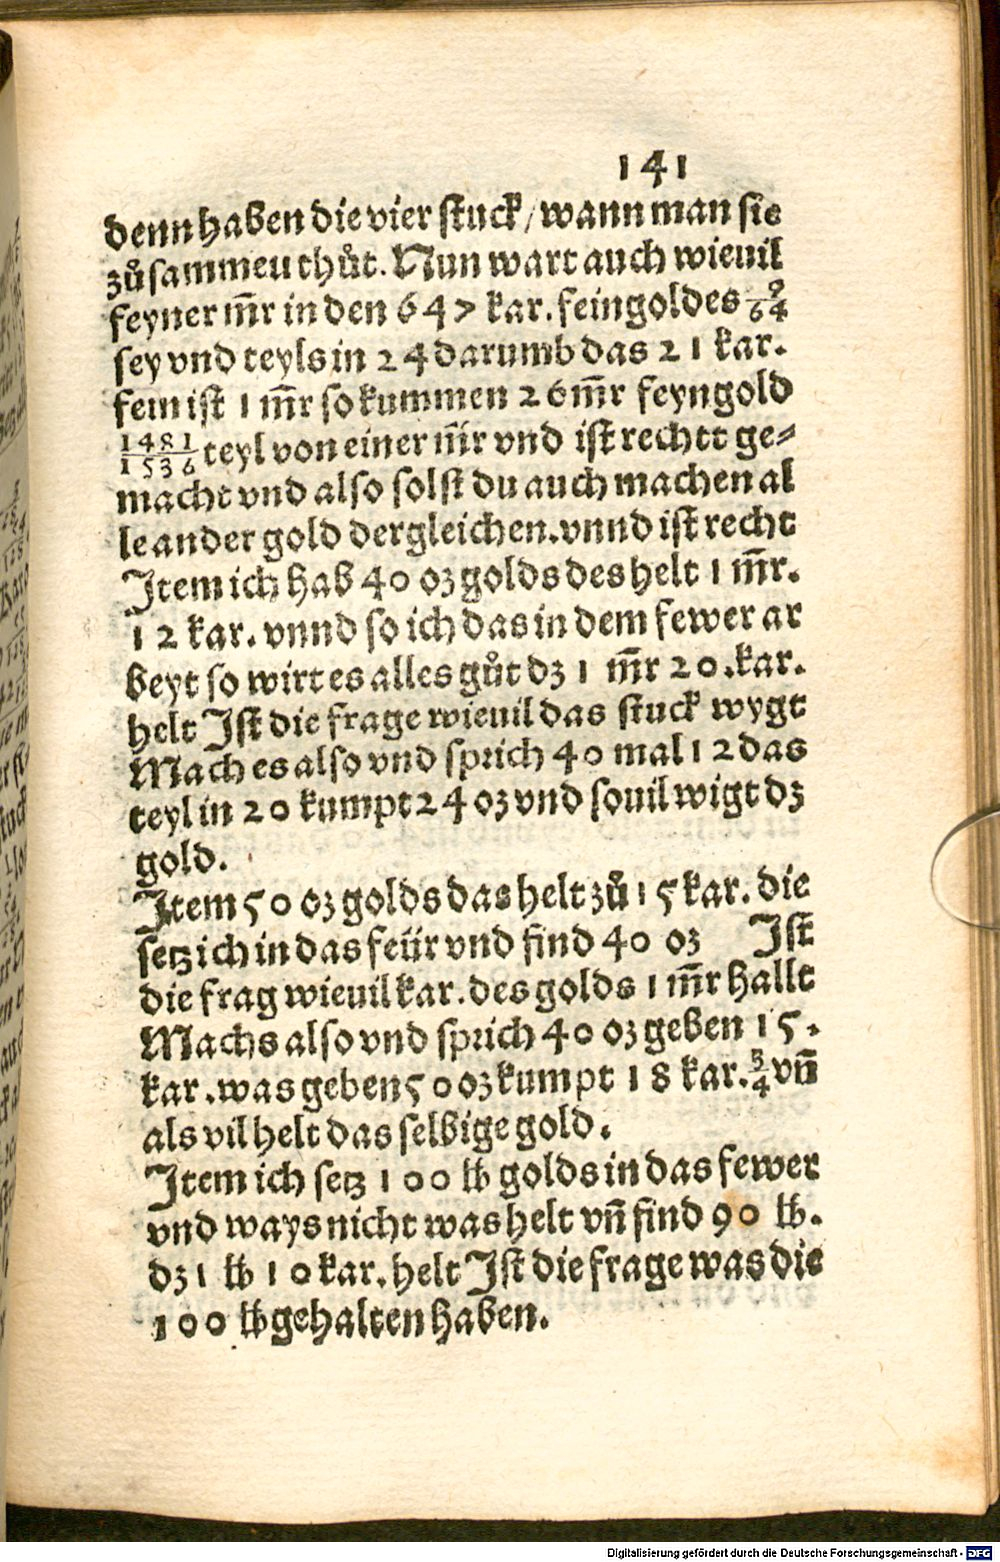 141
denn haben die vier stuck / wann man sie
zůsammeu thůt. Nun wart auch wieuil
feyner m̄r in den 647 kar. feingoldes 9/64
sey vnd teyls in 24 darumb das 21 kar.
fein ist 1 m̄r so kummen 26 m̄r feyngold
1481/1536 teyl von einer m̄r vnd ist rechtt ge⸗
macht vnd also solst du auch machen al
le ander gold dergleichen. vnnd ist recht
Item ich hab 40 oz golds des helt 1 m̄r.
12 kar. vnnd so ich das in dem fewer ar
beyt so wirt es alles gůt dz 1 m̄r 20 .kar.
helt Ist die frage wieuil das stuck wygt
Mach es also vnd sprich 40 mal 12 das
teyl in 20 kumpt 24 oz vnd souil wigt dz
gold.
Item 50 oz golds das helt zů 15 kar. die
setz ich in das feür vnd find 40 oz Ist
die frag wieuil kar. des golds 1 m̄r hallt
Machs also vnd sprich 40 oz geben 15.
kar. was geben 50 oz kumpt 18 kar. 3/4 vn̄
als vil helt das selbige gold.
Item ich setz 100 lb golds in das fewer
vnd ways nicht was helt vn̄ find 90 lb.
dz 1 lb 10 kar. helt Ist die frage was die
100 lb gehalten haben.
Digitalisierung gefördert durch die Deutsche Forschungsgemeinschaft - DFG